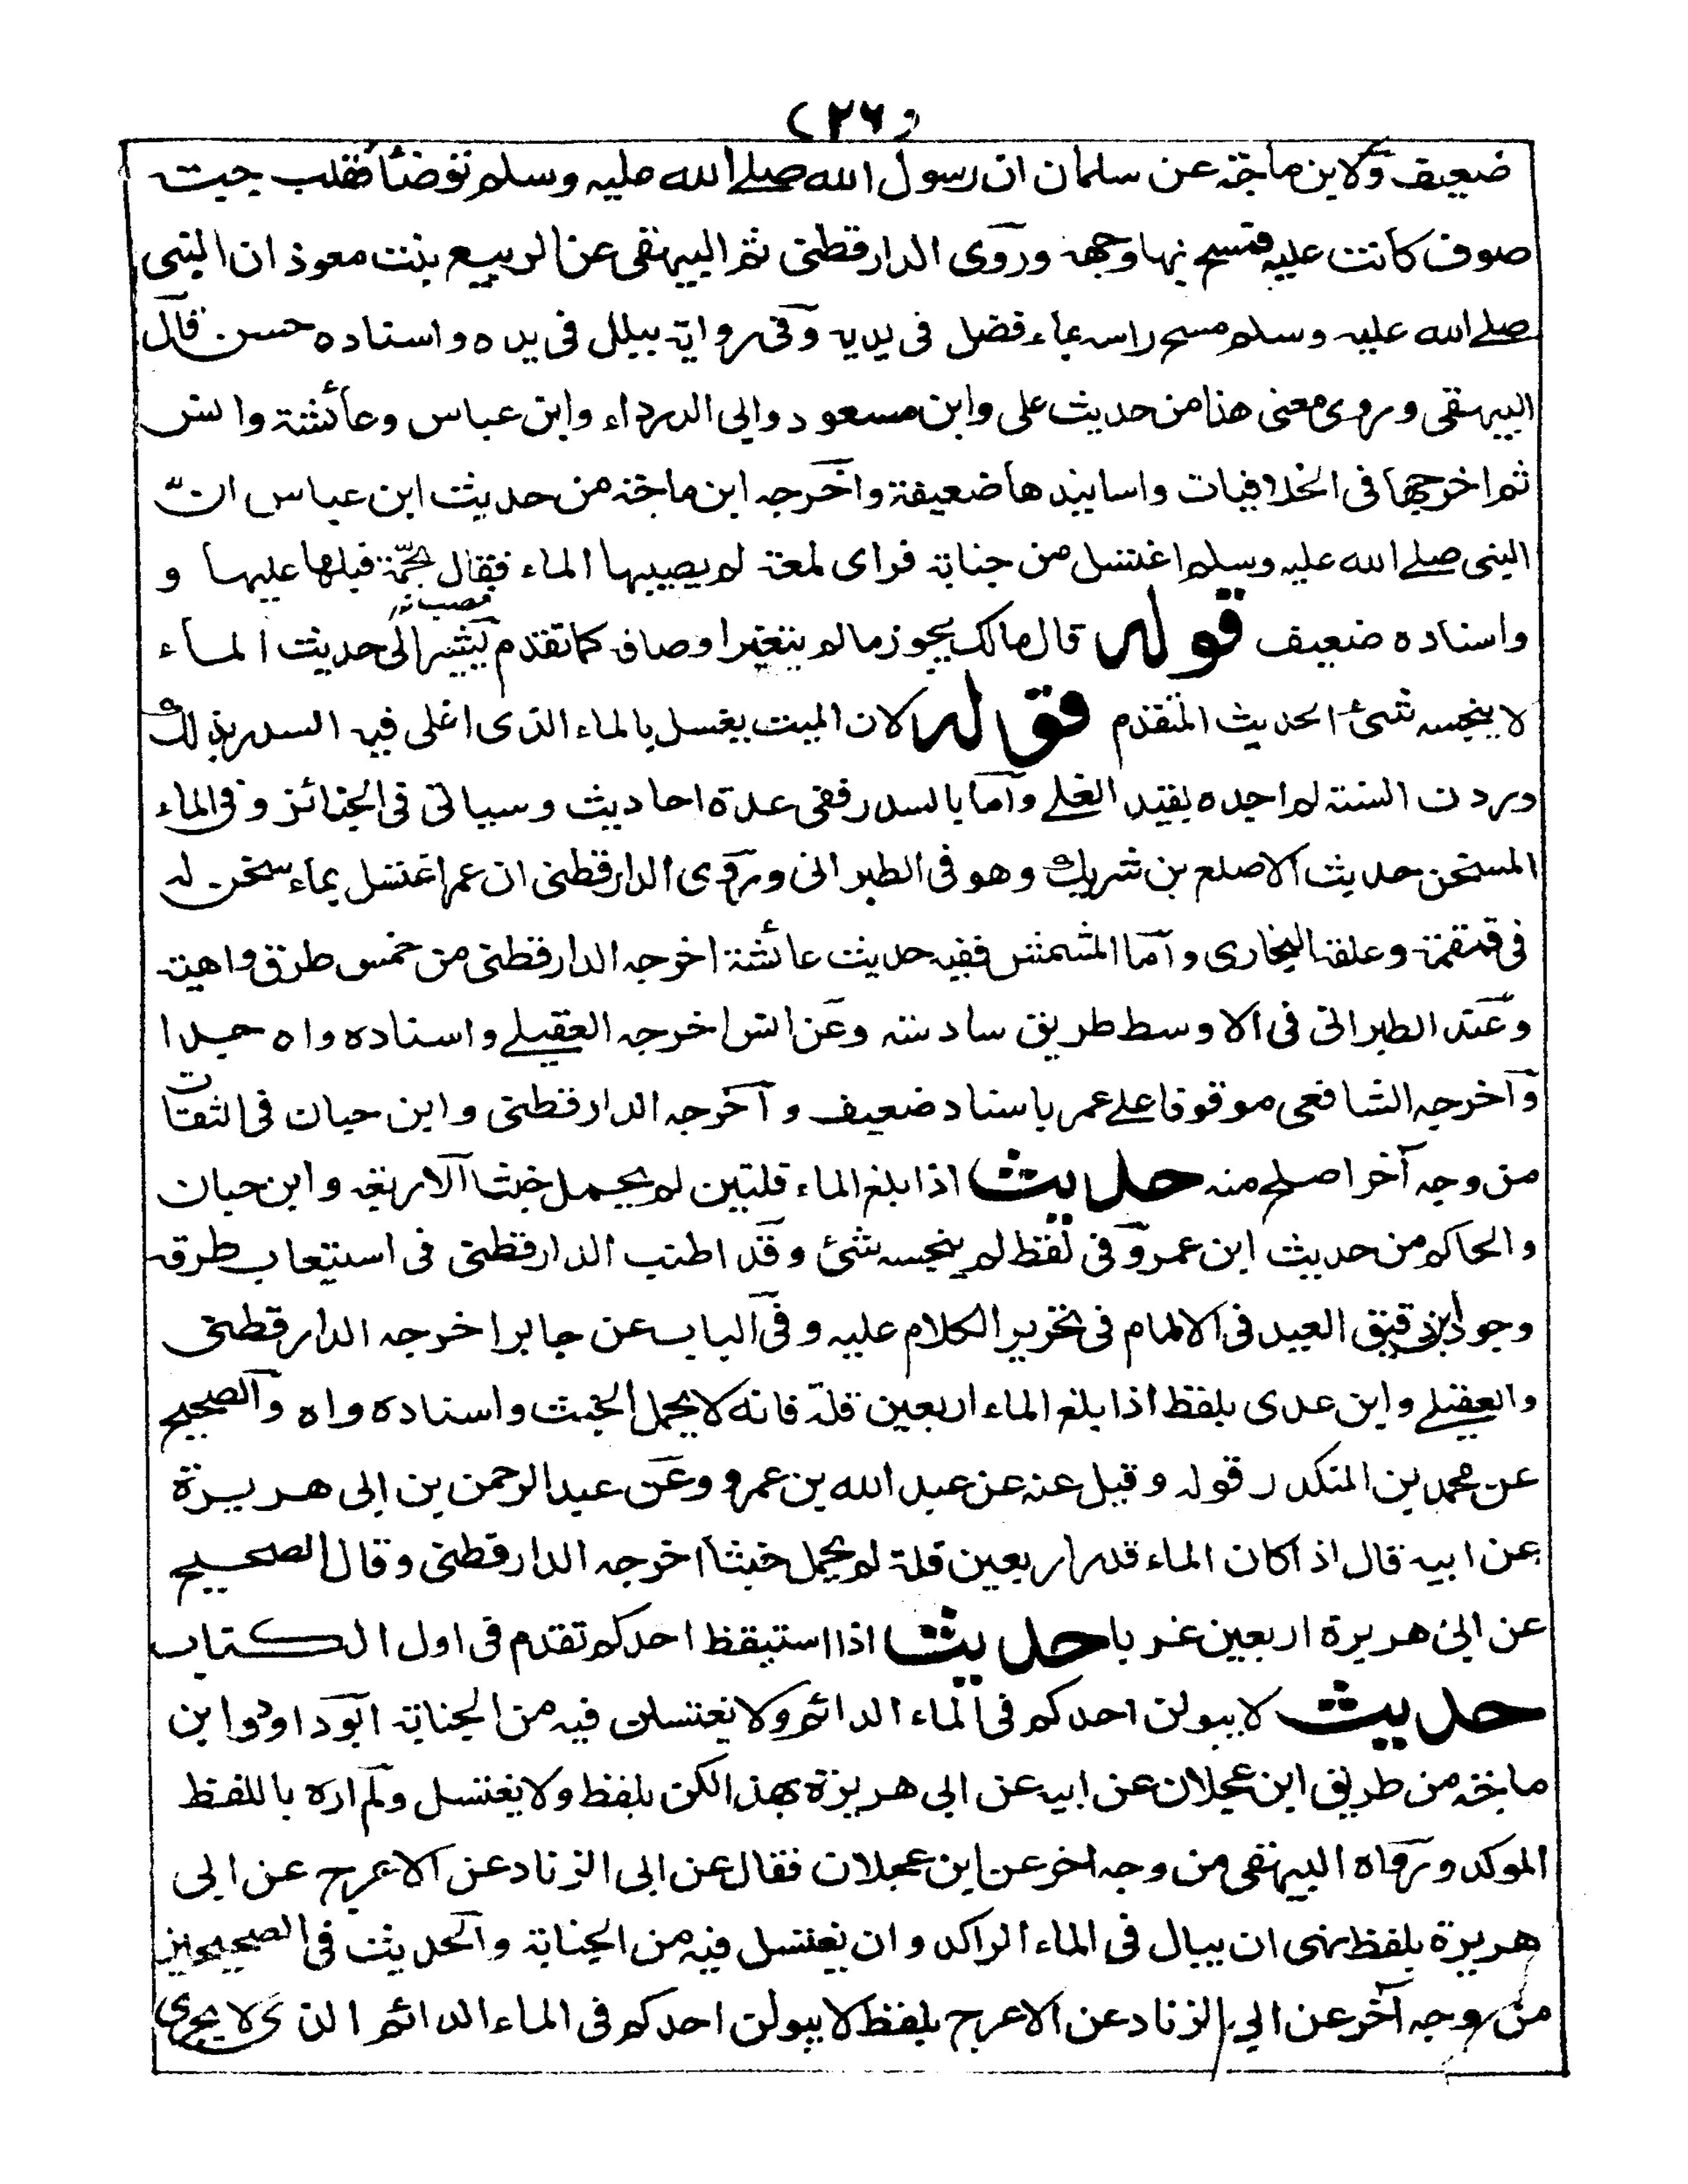 (٢٦)
ضعيف ولابن ماجة عن سلمان ان رسول الله صلے الله عليه وسلم توضأ فقلب جبت
صوف كانت عليه فمسح بها وجهه وروى الدارقطنى ثم البيهقى عن الربيع بنت معوذ ان النبى
صلے الله عليه وسلم مسح راسه بماء فضل فى يديه وفى رواية ببلل فى يده واسناده حسن قال
البيهقى وروى معنى هذا من حديث على وابن مسعود وابى الدرداء وابن عباس وعائشة وانس
ثم اخرجها فى الخلافيات واسانيدها ضعيفة واخرجه ابن ماجة من حديث ابن عباس انّ
النبى صلے الله عليه وسلم اغتسل من جنابة فراى لمعة لم يصيبها الماء فقال بجمّة فبلها عليها و
واسناده ضعيف قوله قال مالك يجوز مالم يتغير اوصافه كما تقدم يشير الى حديث الماء
لا ينجسه شئ الحديث المتقدم قوله لان الميت يغسل بالماء الذى اغلى فيه السدر بذلك
وردت السنة لم اجده بقيد الغلے واما بالسدر ففى عدة احاديث وسياتى فى الجنائز وفى الماء
المسخن حديث الاصلع بن شريك وهو فى الطبرانى وروى الدارقطنى ان عمر اغتسل بماء سخن له
فى قمقمة وعلقه البخارى واما المشمش ففيه حديث عائشة اخرجه الدارقطنى من خمس طرق واهية
وعند الطبرانى فى الاوسط طريق سادسة وعن انس اخرجه العقيلے واسناده واه جدا
واخرجه الشافعى موقوفا علے عمر باسناد ضعيف واخرجه الدارقطنى وابن حبان فى الثقات
من وجه آخر اصلح منه حديث اذا بلغ الماء قلتين لم يحمل خبثا الاربعة وابن حبان
والحاكم من حديث ابن عمر وفى لفظ لم ينجسه شئ وقد اطنب الدارقطنى فى استيعاب طرقه
وجود ابن دقيق العيد فى الالمام فى تحرير الكلام عليه وفى الباب عن جابر اخرجه الدارقطنى
والعقيلے وابن عدى بلفظ اذا بلغ الماء اربعين قلة فانه لا يحمل الخبث واسناده واه والصحيح
عن محمد بن المنكدر قوله وقيل عنه عن عبد الله بن عمرو وعن عبد الرحمن بن ابى هريرة
عن ابيه قال اذا كان الماء قدر اربعين قلة لم يحمل خبثا اخرجه الدارقطنى وقال الصحيح
عن ابى هريرة اربعين غربا حديث اذا استيقظ احدكم تقدم فى اول الكتاب
حديث لا يبولن احدكم فى الماء الدائم ولا يغتسلن فيه من الجنابة ابوداود وابن
ماجة من طريق ابن عجلان عن ابيه عن ابى هريرة بهذا لكن بلفظ ولا يغتسل ولم اره باللفظ
الموكد ورواه البيهقى من وجه اخر عن ابن عجلان فقال عن ابى الزناد عن الاعرج عن ابى
هريرة بلفظ نهى ان يبال فى الماء الراكد وان يغتسل فيه من الجنابة والحديث فى الصحيحين
من وجه آخر عن ابى الزناد عن الاعرج بلفظ لا يبولن احدكم فى الماء الدائم الذى لا يجرى